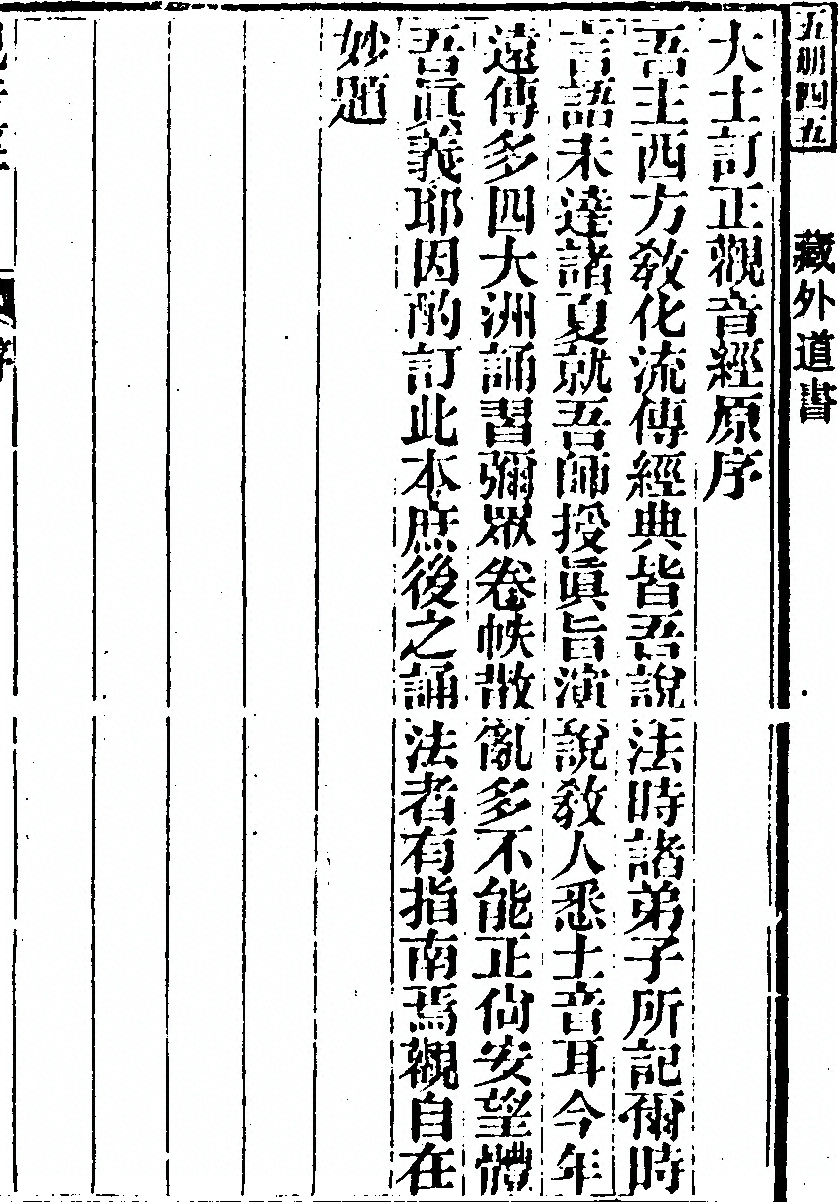 五册四五
藏外道書
大士訂正觀音經原序
吾主西方敎化流傳經典皆吾說法時諸弟子所記爾時
言語未達諸夏就吾師授眞旨演說敎人悉土音耳今年
遠傳多四大洲誦習彌眾卷帙散亂多不能正尙安望體
吾眞義耶因酌訂此本庶後之誦法者有指南焉觀自在
妙題